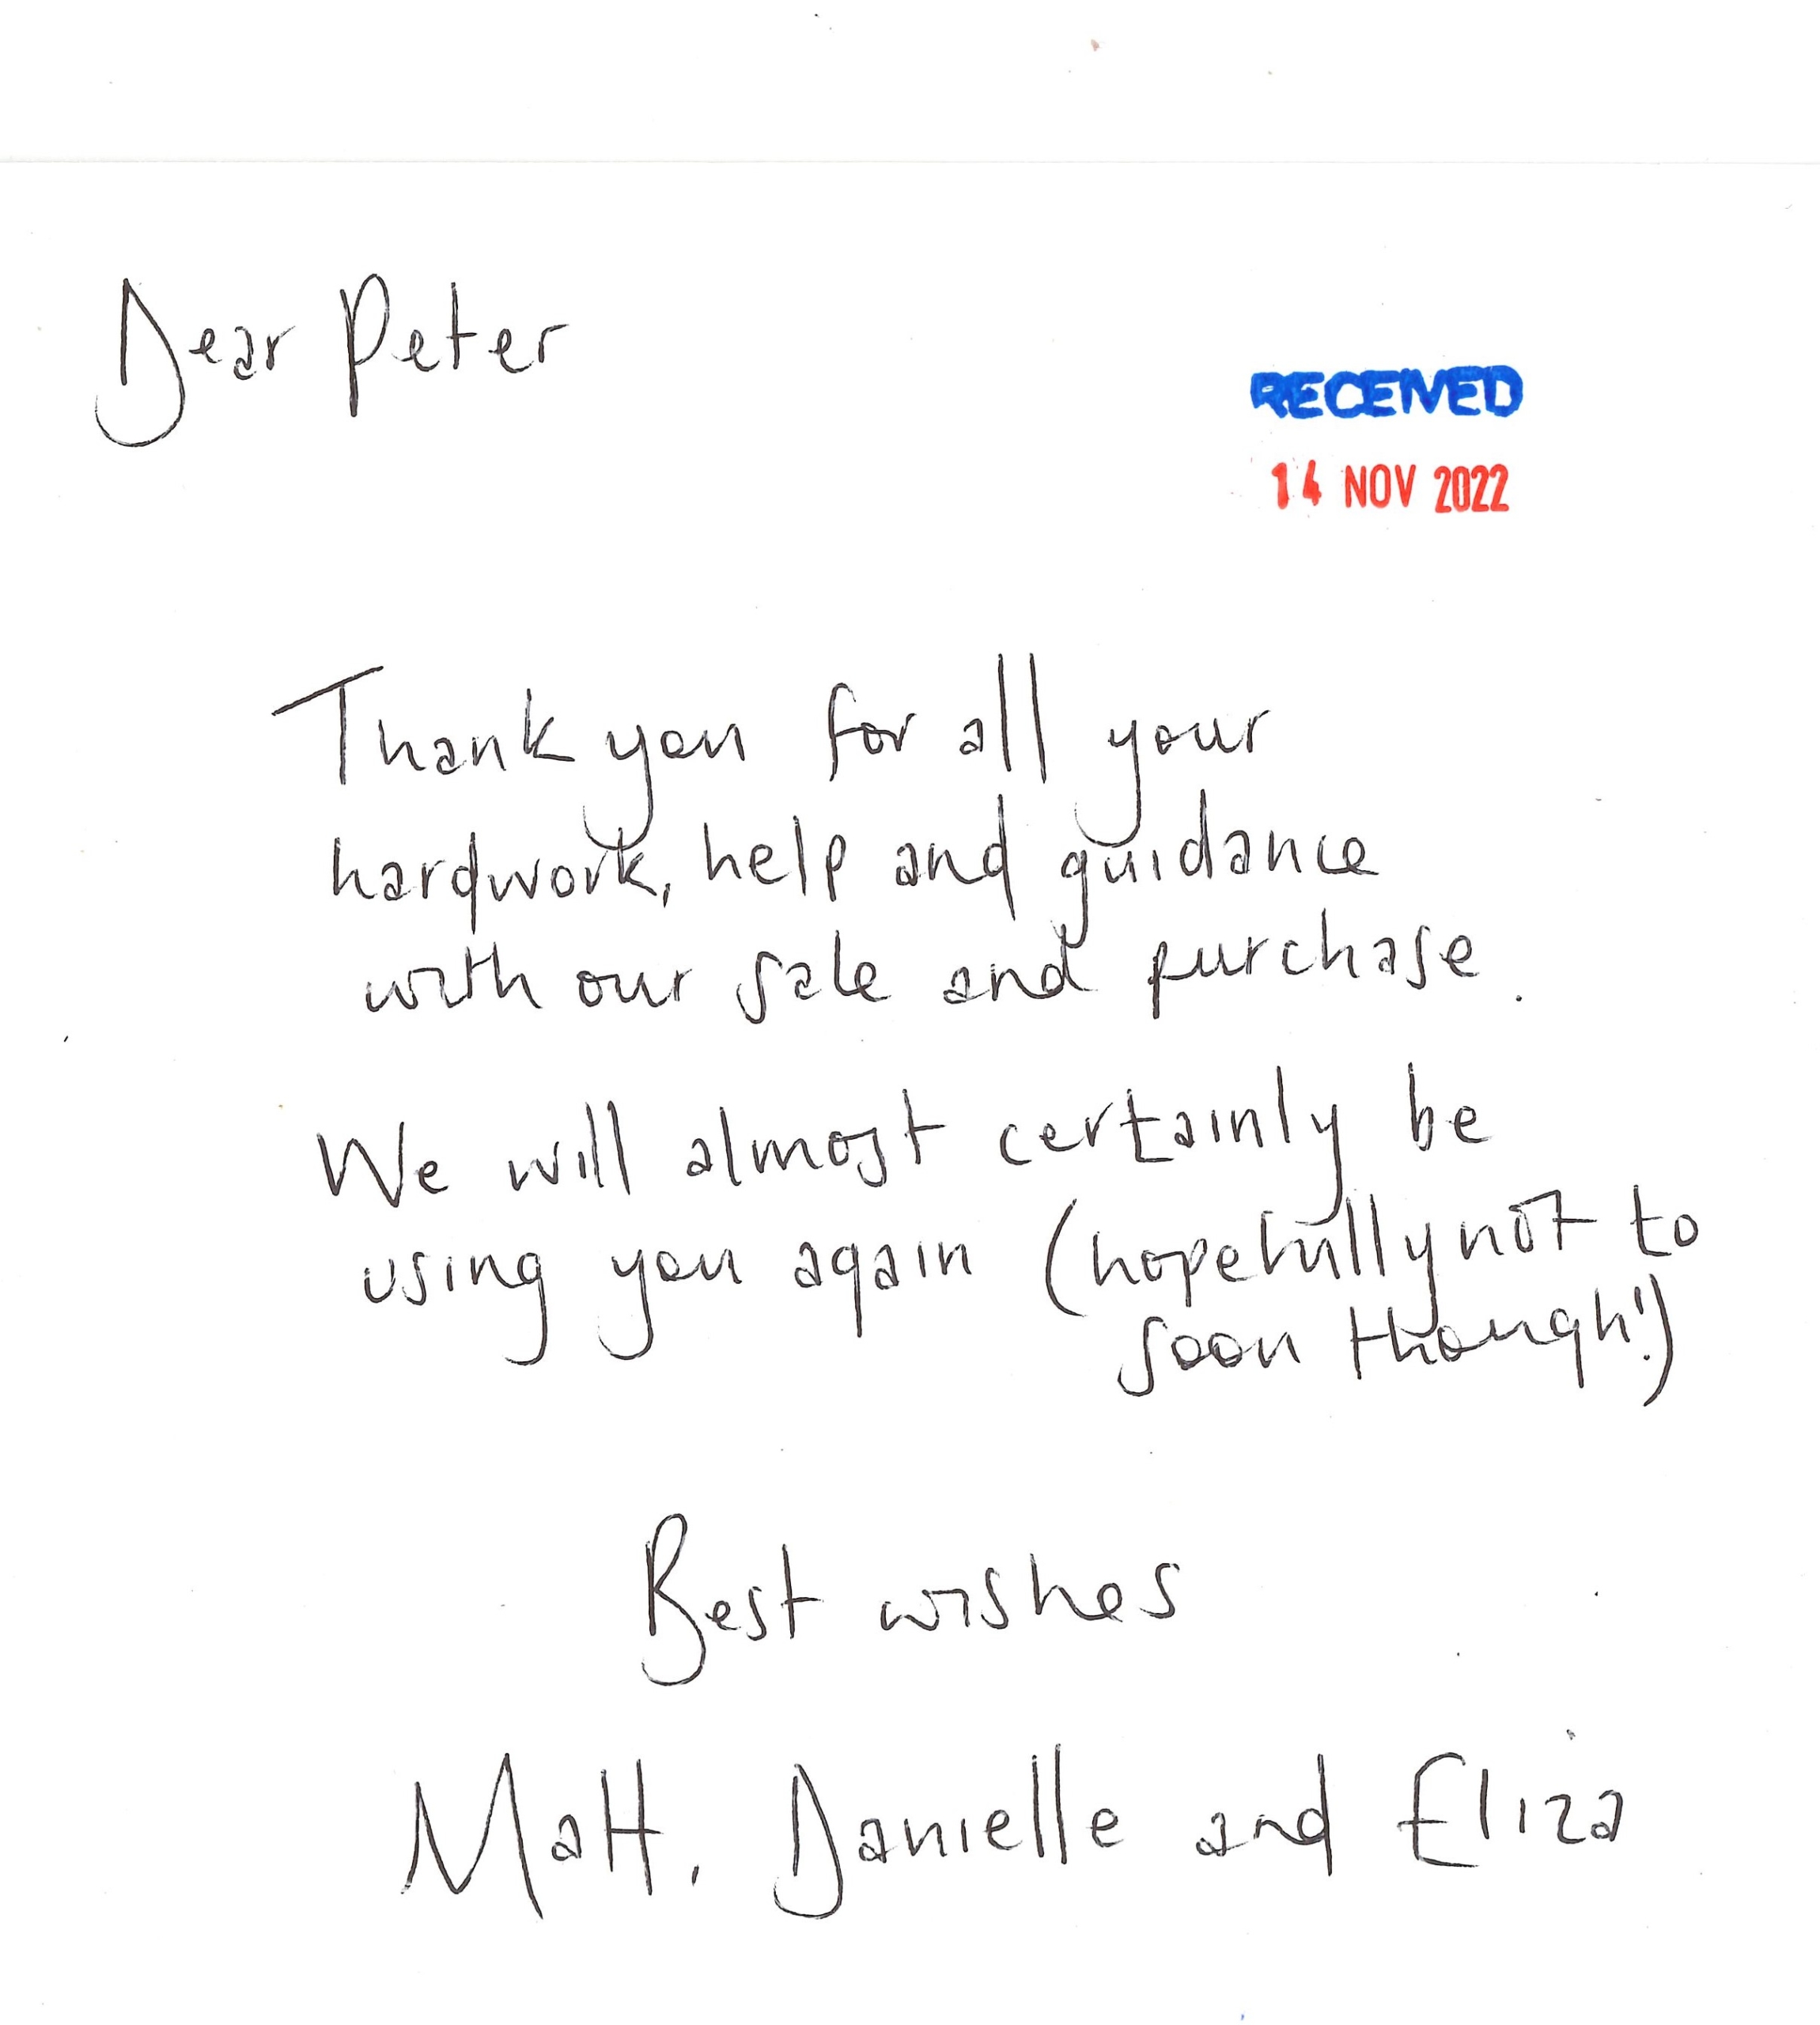 Dear Peter
RECEIVED
14 NOV 2022
Thank you for all your
hardwork, help and guidance
with our sale and purchase.
We will almost certainly be
using you again (hopefully not to
soon though!)
Best wishes
Matt, Danielle and Eliza